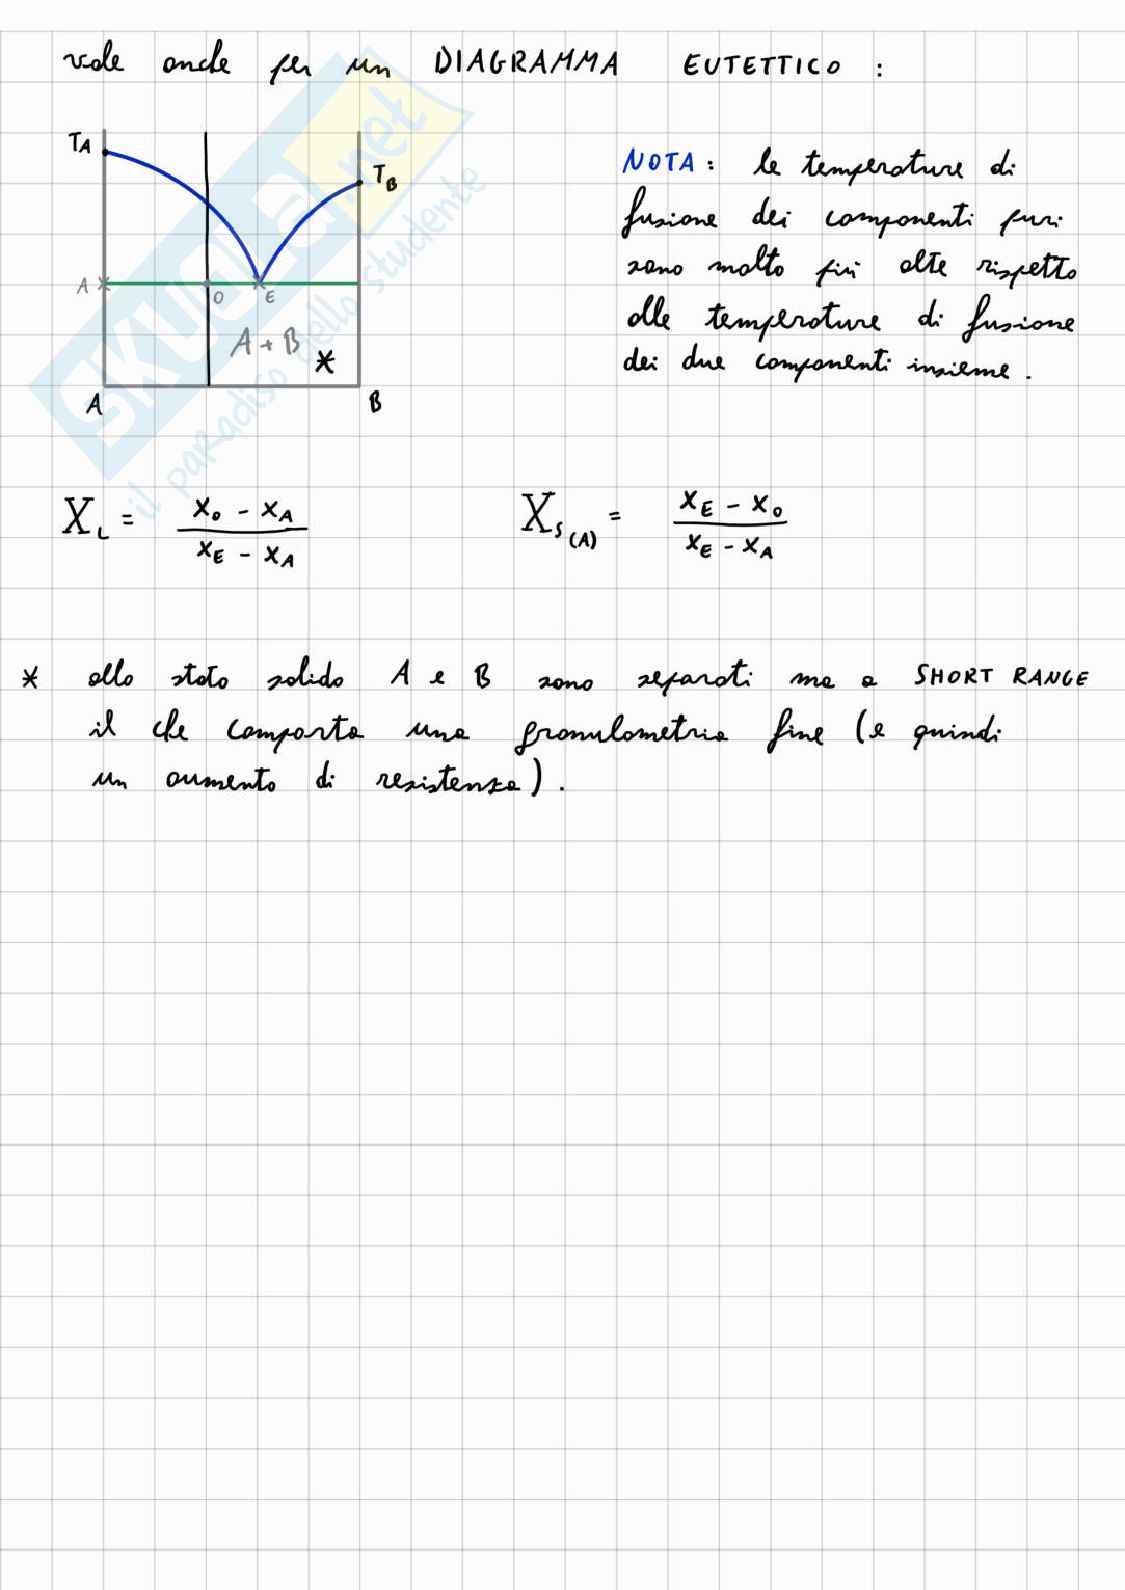 vale anche per un DIAGRAMMA EUTETTICO :
TA
TB
A
O
E
A + B
*
A
B
NOTA : le temperature di
fusione dei componenti puri
sono molto più alte rispetto
alle temperature di fusione
dei due componenti insieme .
XL = xo - xA / xE - xA
XS(A) = xE - xo / xE - xA
* allo stato solido A e B sono separati ma a SHORT RANGE
il che comporta una granulometria fine (e quindi
un aumento di resistenza) .
SKUOLA.net
il paradiso dello studente